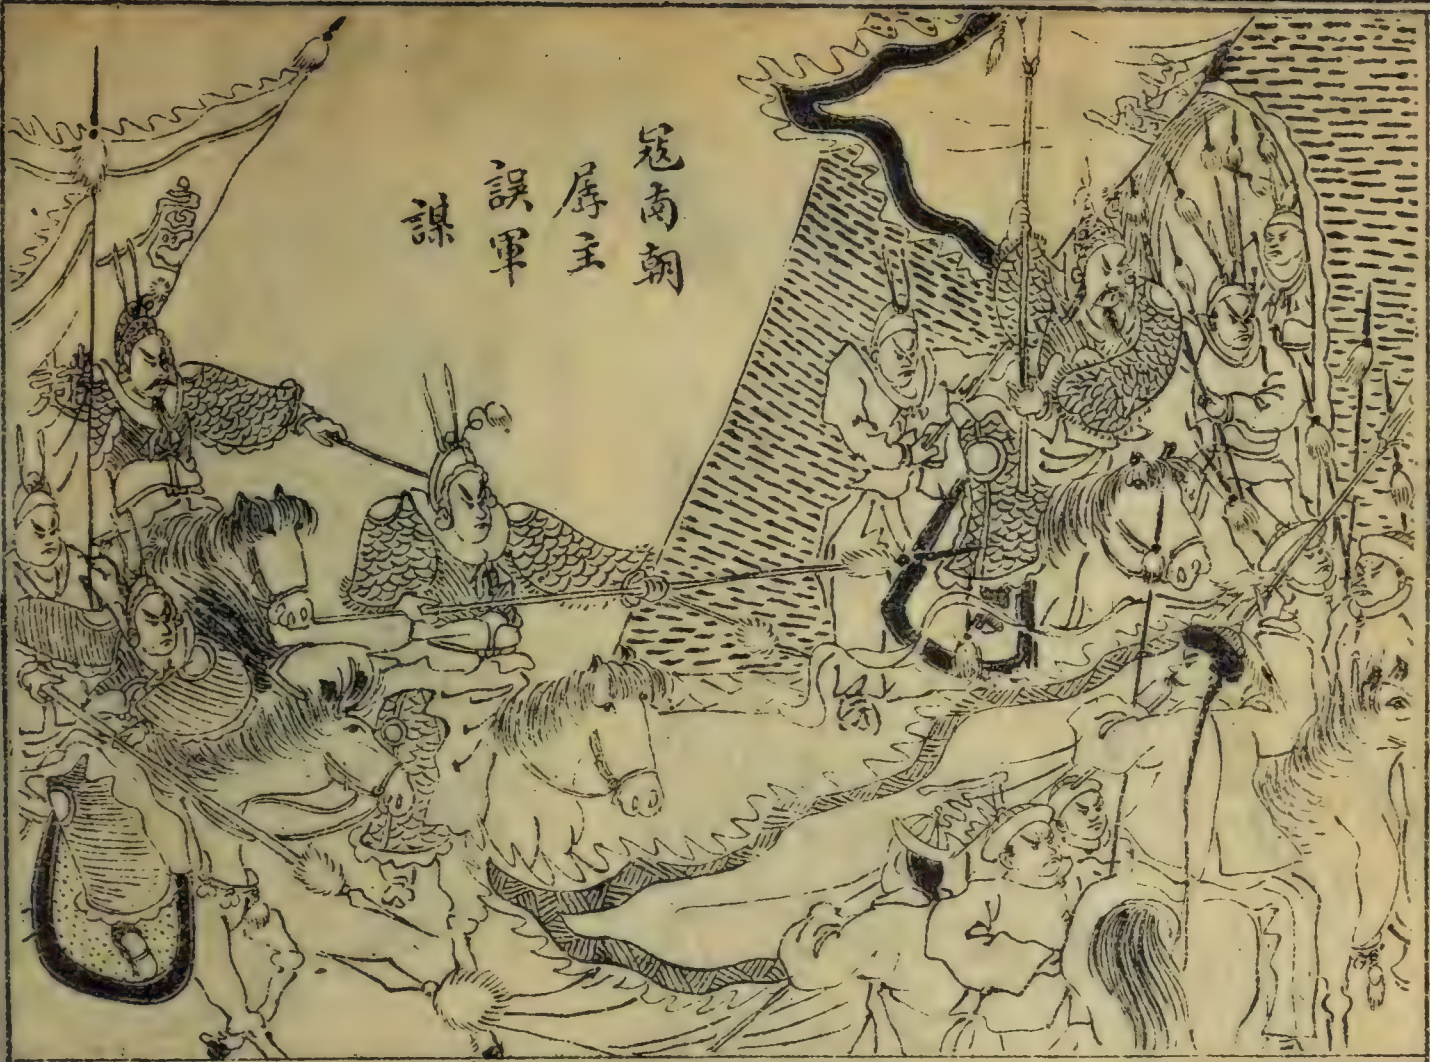 寇南朝
孱主
誤軍
謀